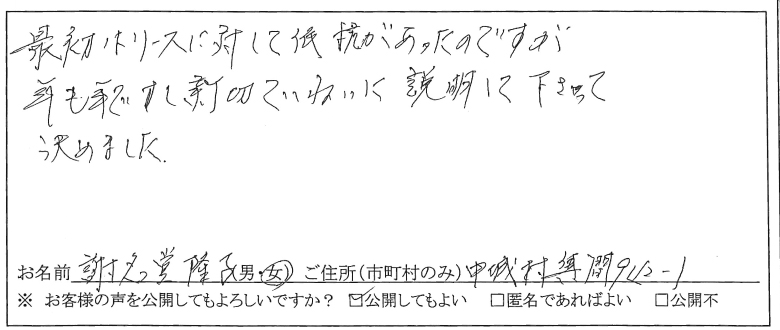 最初はリースに対して低抗があったのですが
親切ていねいに説明して下さって
決めました.
お名前 謝名堂 隆子 (男・女) ご住所(市町村のみ) 中城村
※ お客様の声を公開してもよろしいですか? ☑公開してもよい □匿名であればよい □公開不